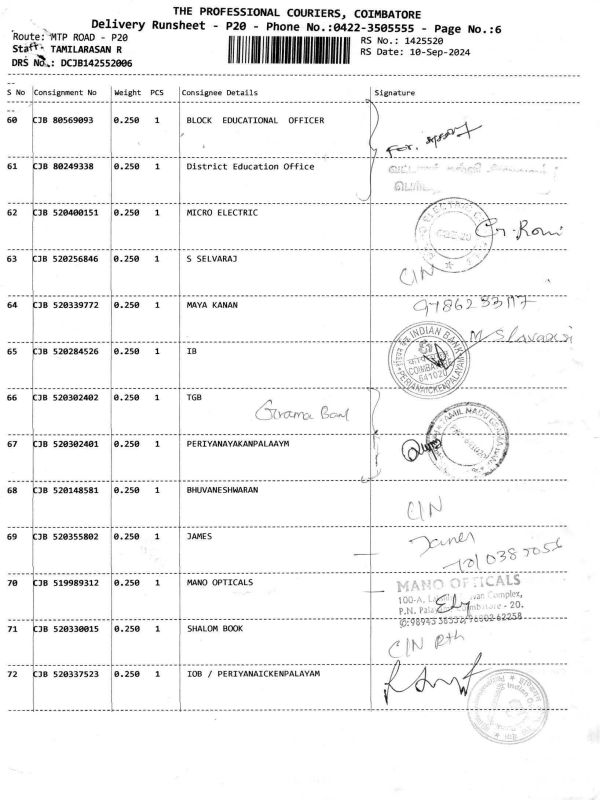 THE PROFESSIONAL COURIERS, COIMBATORE
Delivery Runsheet - P20 - Phone No.:0422-3505555 - Page No.:6
Route: MTP ROAD - P20
RS No.: 1425520
Staff: TAMILARASAN R
RS Date: 10-Sep-2024
DRS No.: DCJB142552006
S No Consignment No Weight PCS Consignee Details Signature
60 CJB 80569093 0.250 1 BLOCK EDUCATIONAL OFFICER
For.
61 CJB 80249338 0.250 1 District Education Office
62 CJB 520400151 0.250 1 MICRO ELECTRIC
63 CJB 520256846 0.250 1 S SELVARAJ
C/N
64 CJB 520339772 0.250 1 MAYA KANAN
65 CJB 520284526 0.250 1 IB
INDIAN BANK
COIMBATORE
641020
PERIANAICKENPALAYAM
66 CJB 520302402 0.250 1 TGB
Grama Bank
TAMIL NADU GRAMA BANK
67 CJB 520302401 0.250 1 PERIYANAYAKANPALAAYM
68 CJB 520148581 0.250 1 BHUVANESHWARAN
C/N
69 CJB 520355802 0.250 1 JAMES
James
70 CJB 519989312 0.250 1 MANO OPTICALS
MANO OPTICALS
100-A, Complex,
P.N. Coimbatore - 20.
71 CJB 520330015 0.250 1 SHALOM BOOK
C/N
72 CJB 520337523 0.250 1 IOB / PERIYANAICKENPALAYAM